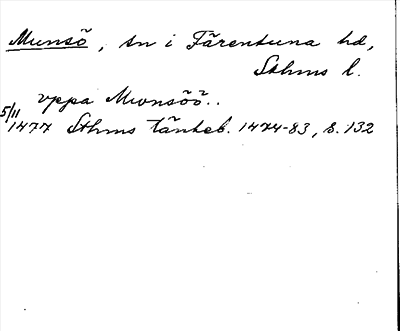 Munsö, sn i Färentuna hd,
Sthms l.
vppa Mwnsöö..
5/11
1477 Sthms tänkeb. 1474-83, s. 132